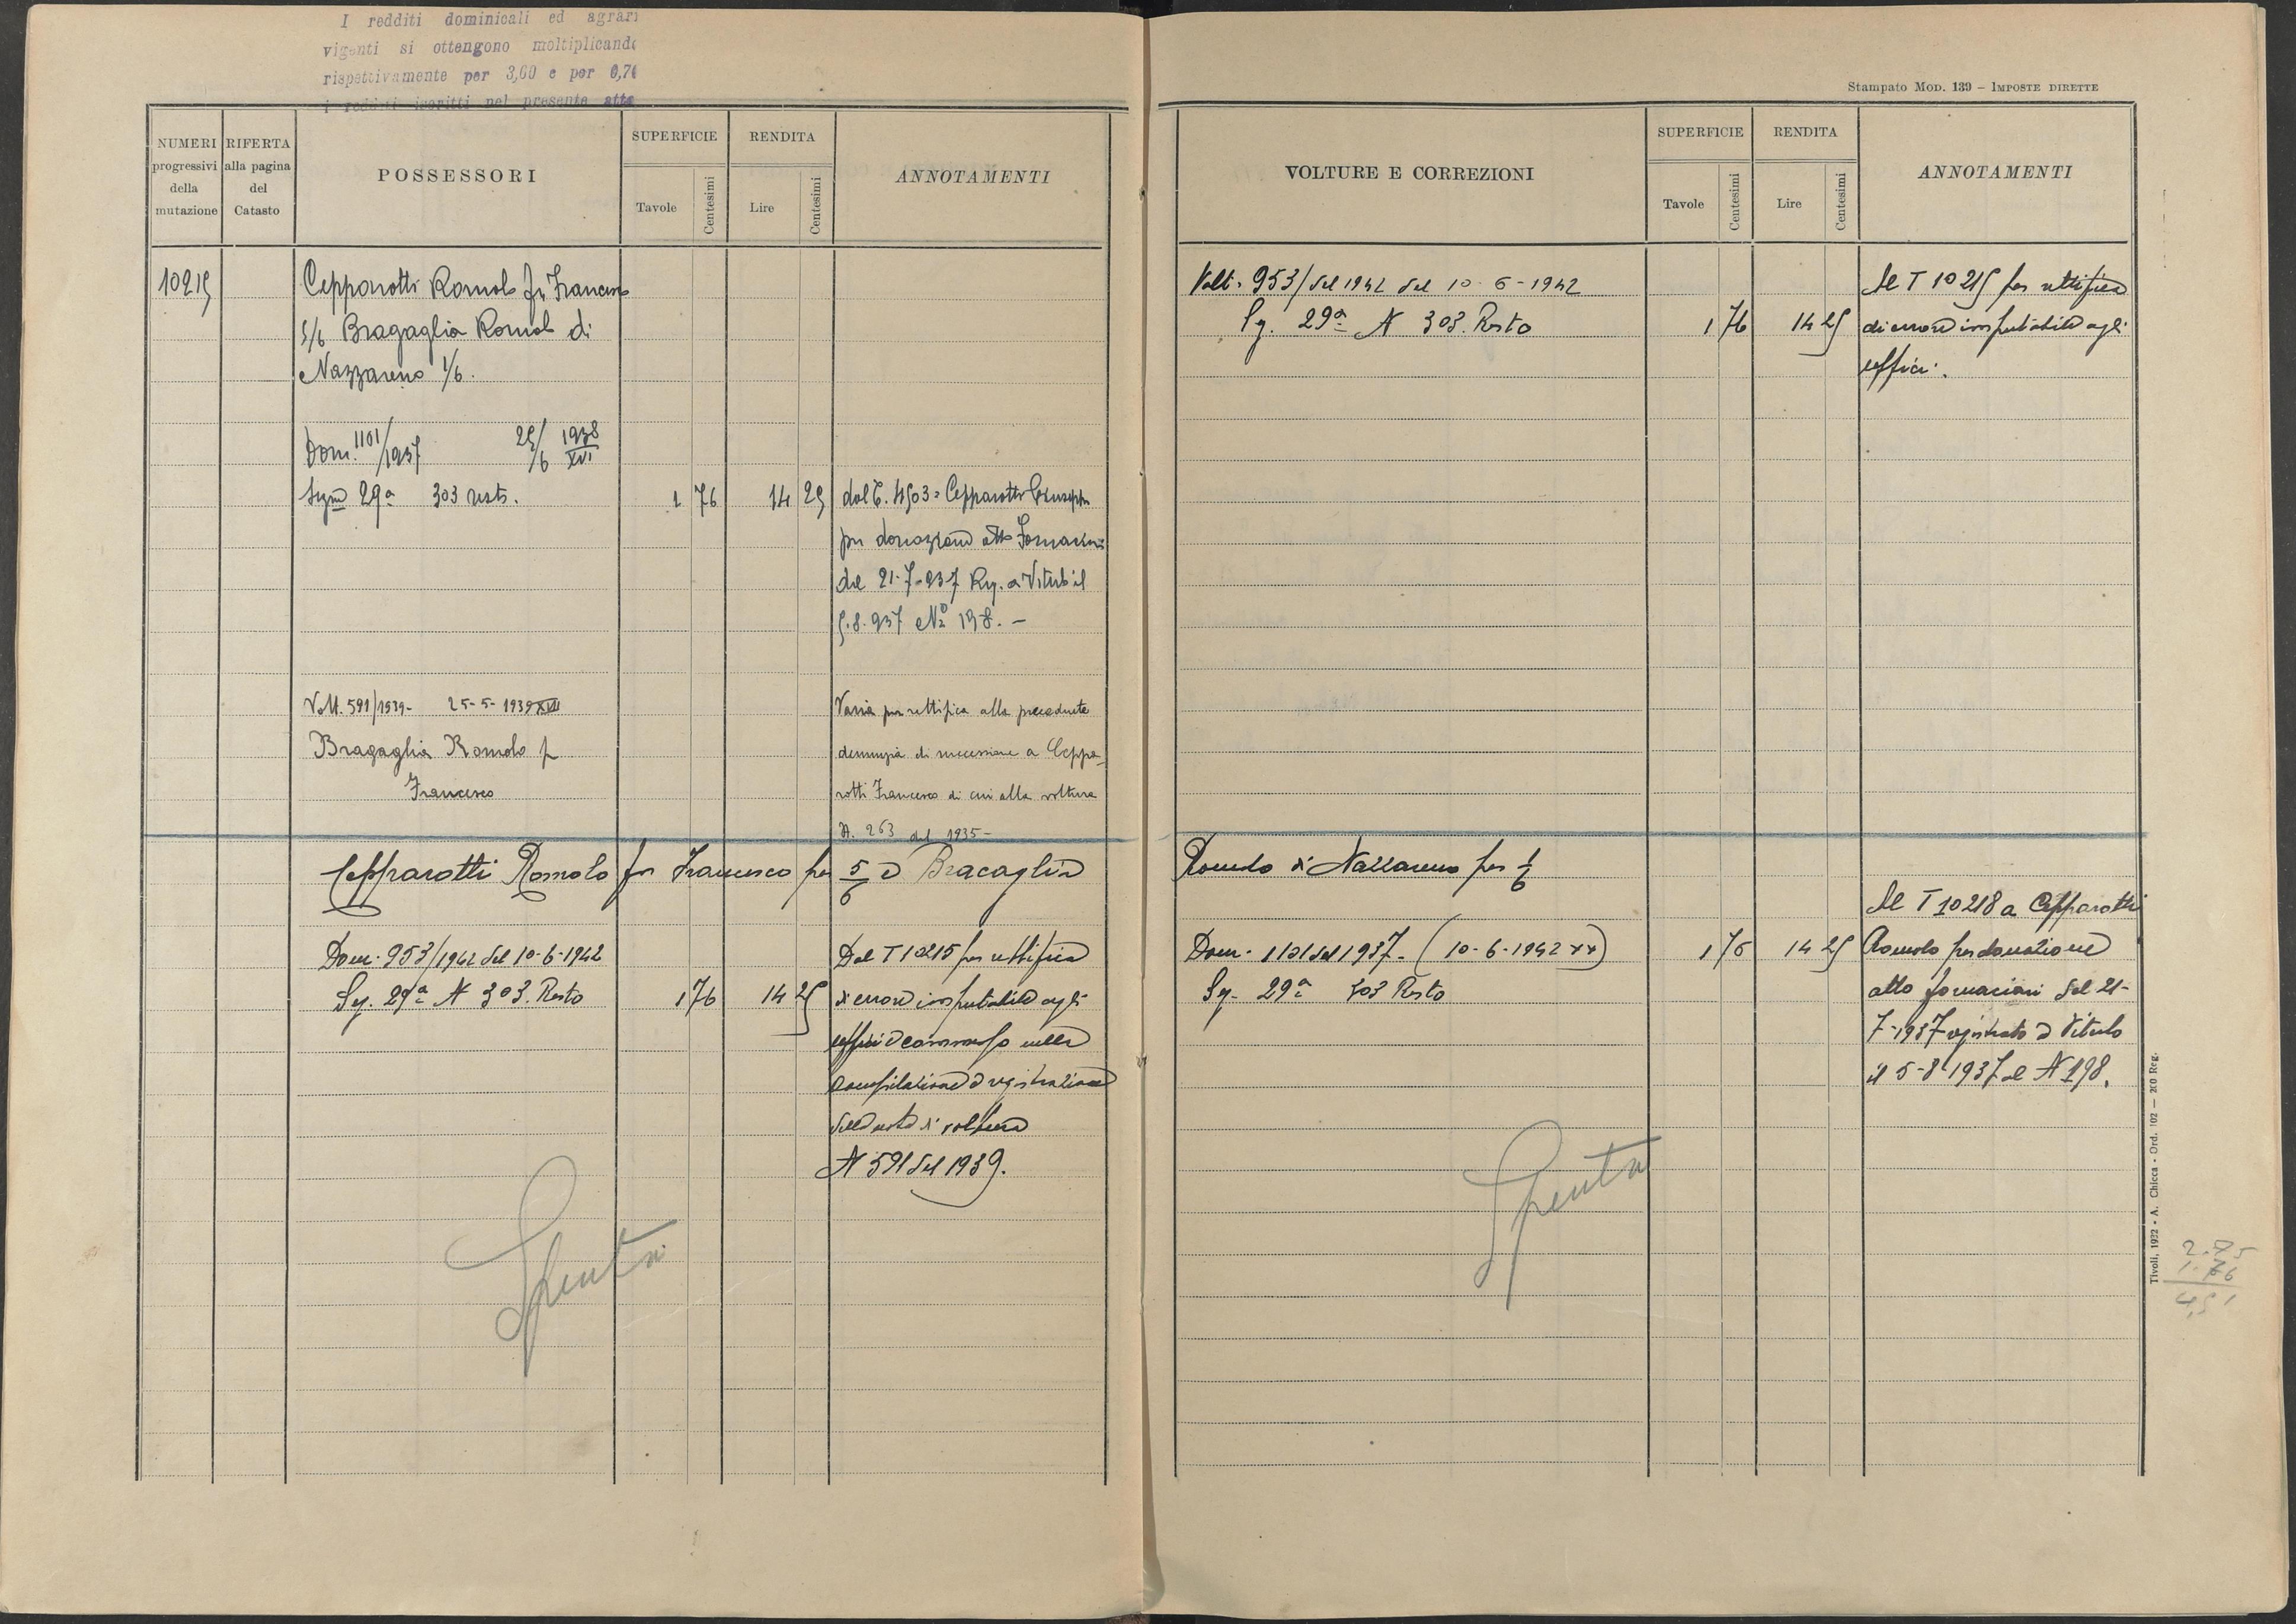 I redditi dominicali ed agrari
vigenti si ottengono moltiplicando
rispettivamente per 3,60 e per 0,70
i redditi iscritti nel presente atto
NUMERI
progressivi
della
mutazione
RIFERTA
alla pagina
del
Catasto
POSSESSORI
SUPERFICIE
Tavole
Centesimi
RENDITA
Lire
Centesimi
ANNOTAMENTI
10215
Cepparotti Romolo fu Francesco
5/6 Bragaglia Romolo di
Nazzareno 1/6.
Dom. 1101/1937 25/6 1938 XVI
Segna 29a 303 resto. 1 76 14 25
dal T. 4503 = Cepparotti Giuseppe
per donazione atto Fornaciari
del 21-7-937 Reg. a Viterbo il
5.8.937 No 198. -
Volt. 591/1939- 25-5-1939 XVII
Bragaglia Romolo fu
Francesco
Varia per rettifica alla precedente
denunzia di successione a Ceppa-
rotti Francesco di cui alla voltura
N. 263 del 1935-
Cepparotti Romolo fu Francesco per 5/6 e Bracaglia
Dom. 953/1942 del 10-6-1942
Sez. 29a N 303. Resto 1 76 14 25
Dal T 10215 per rettifica
di errore imputabile agli
uffici e commesso nella
compilazione e registrazione
della nota di voltura
N 591 del 1939.
Spenta
Stampato Mod. 139 – Imposte dirette
VOLTURE E CORREZIONI
SUPERFICIE
Tavole
Centesimi
RENDITA
Lire
Centesimi
ANNOTAMENTI
Volt. 953/ del 1942 del 10-6-1942
Sez. 29a N 303. Resto 1 76 14 25
Al T 10215 per rettifica
di errore imputabile agli
uffici.
Romolo di Nazzareno per 1/6
Dom. 1101 del 1937. (10-6-1942 XX) 1 76 14 25
Sez. 29a 303 Resto
Al T 10218 a Cepparotti
Romolo per donazione
atto Fornaciari del 21-
7-1937 registrato a Viterbo
il 5-8-1937 al N 198.
Spenta
Tivoli, 1932 - A. Chicca - Ord. 102 — 200 Reg.
2.75
1.76
4,51